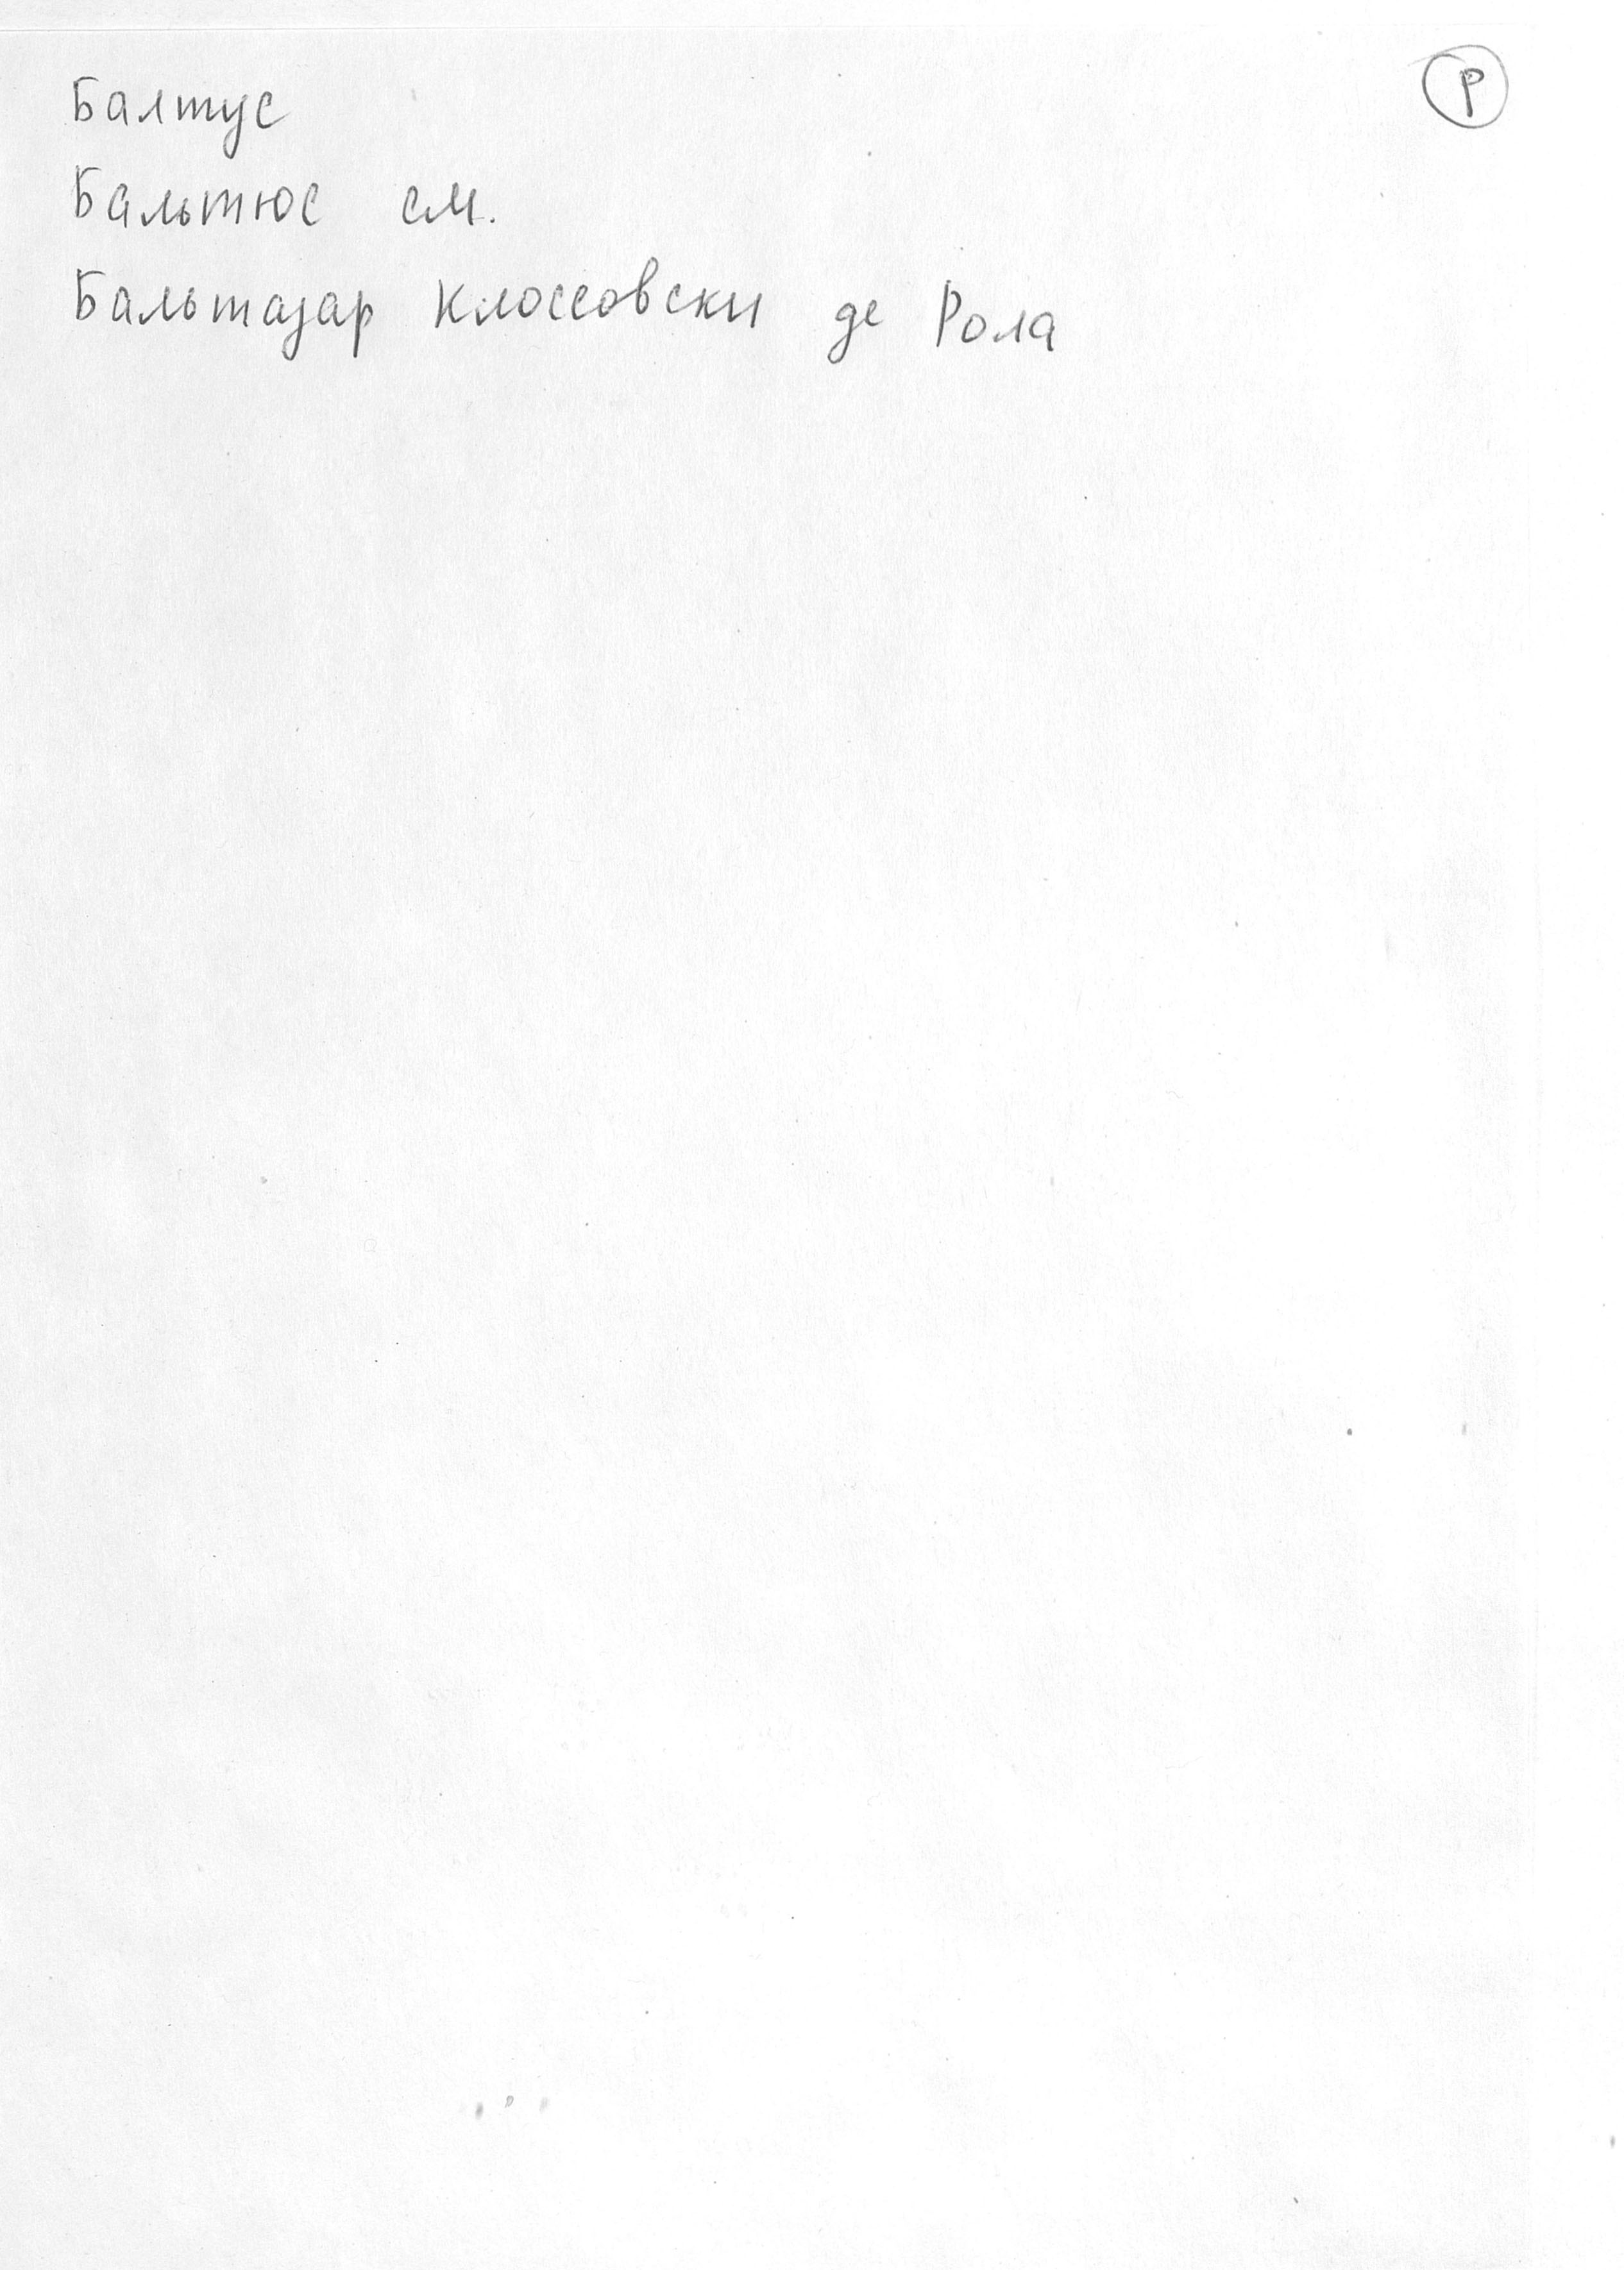 Р
Балтус
Бальтюс см.
Бальтазар Клоссовски де Рола